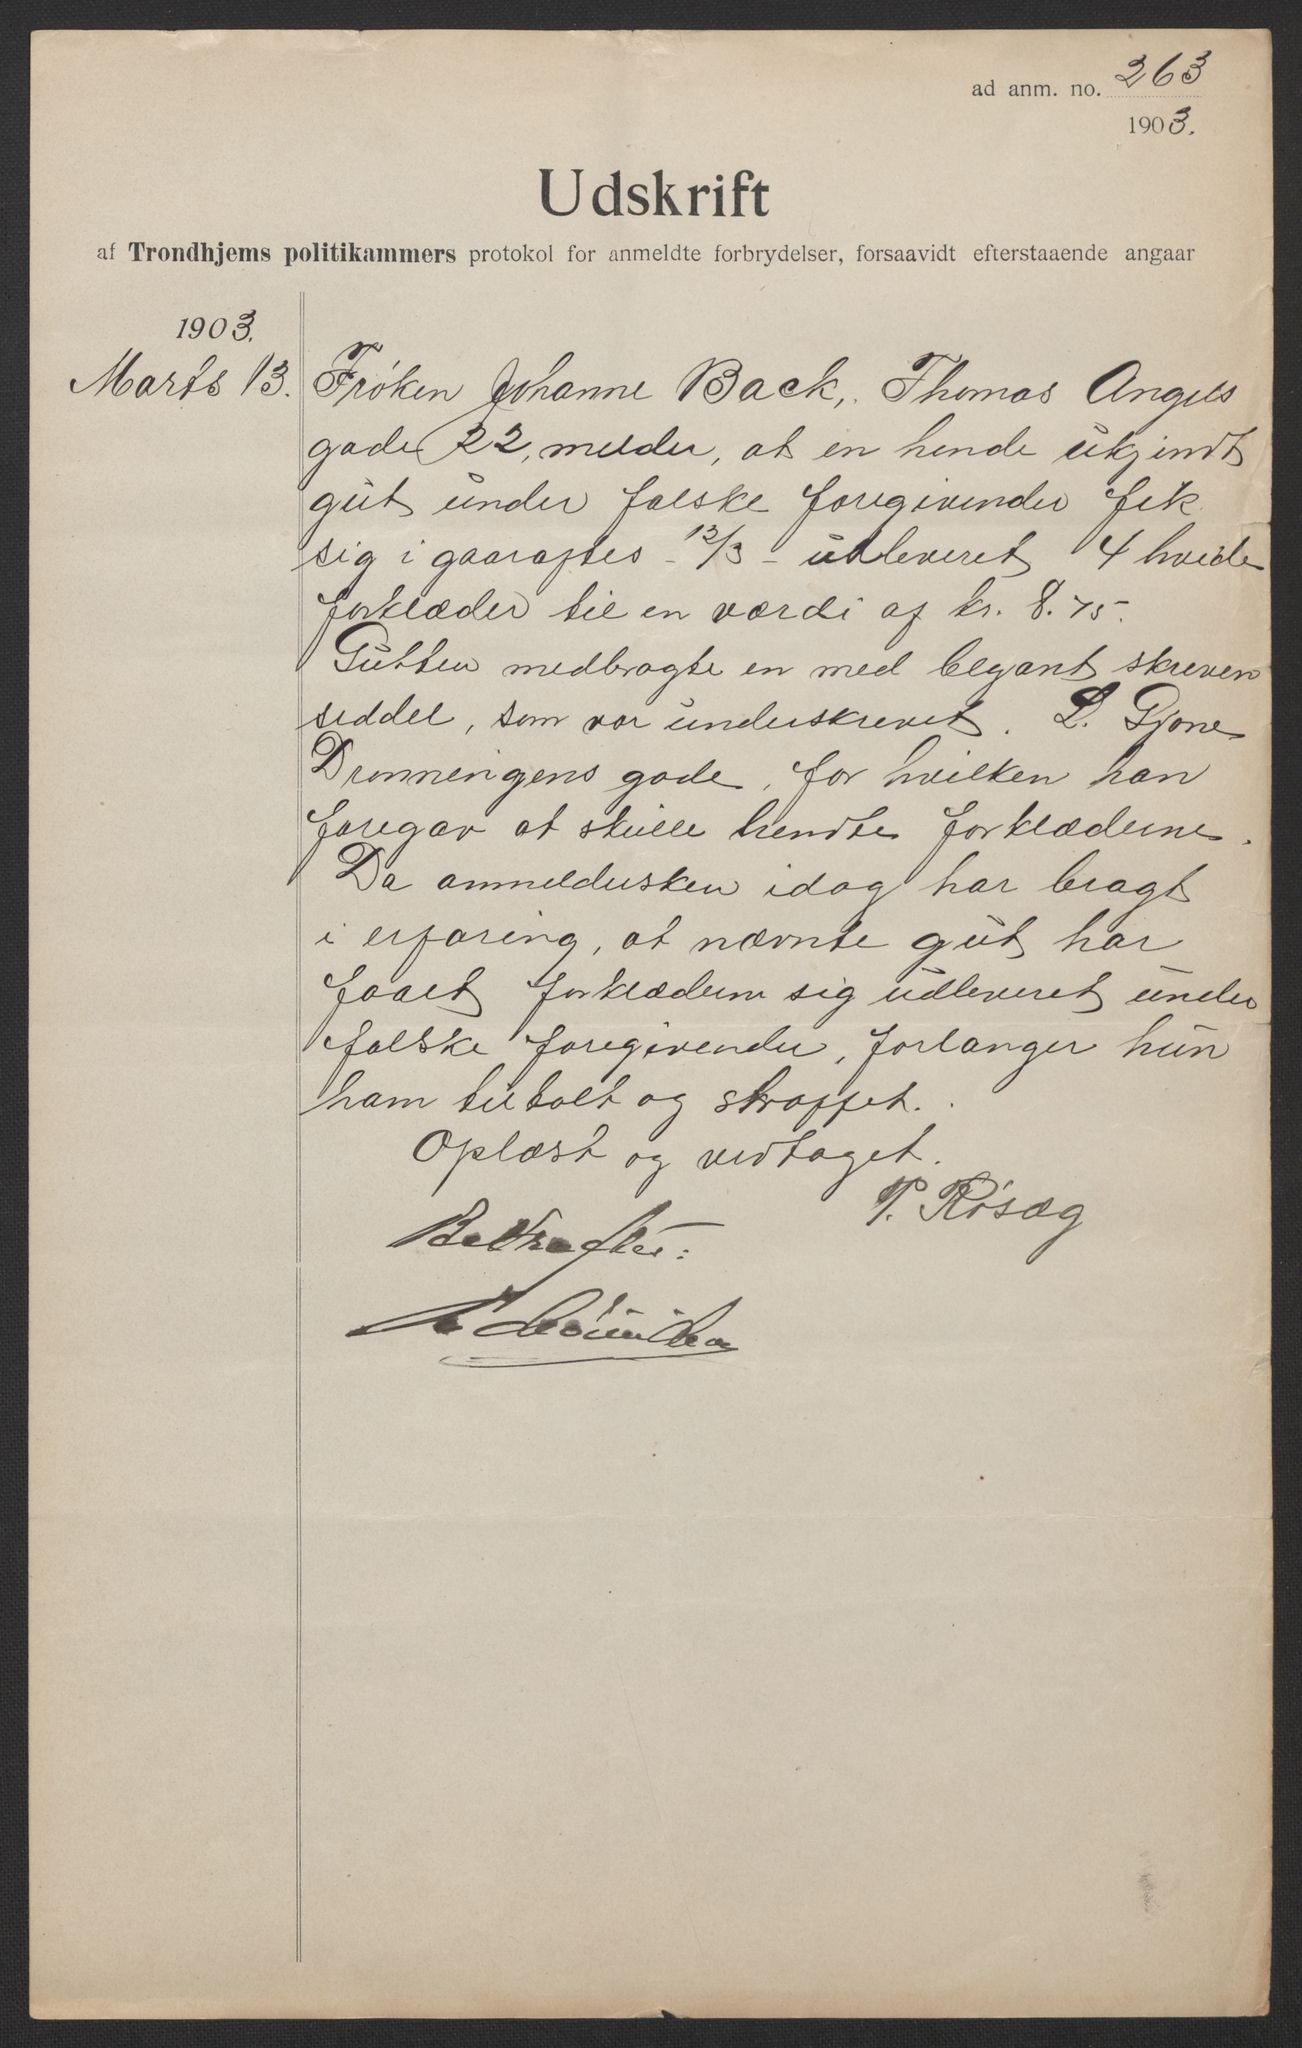 ad anm. no. 263
1903.
Udskrift
af Trondhjems politikammers protokol for anmeldte forbrydelser, forsaavidt efterstaaende angaar
1903.
Marts 13. Frøken Johanne Back, Thomas Angels
gade 22, melder, at en hende ukjendt
gut under falske foregivender fik
sig i gaaraftes - 12/3 - udleveret 4 hvide
forklæder til en værdi af kr. 8.75.
Gutten medbragte en med blyant skreven
seddel, som var underskrevet. L. Gjone
Dronningens gade, for hvilken han
foregav at skulle hendte forklæderne.
Da anmeldersken idag har bragt
i erfaring, at nævnte gut har
faaet forklæderne sig udleveret under
falske foregivender, forlanger hun
ham tiltalt og straffet.
Oplæst og vedtaget.
P. Risæg
Bekræftes: